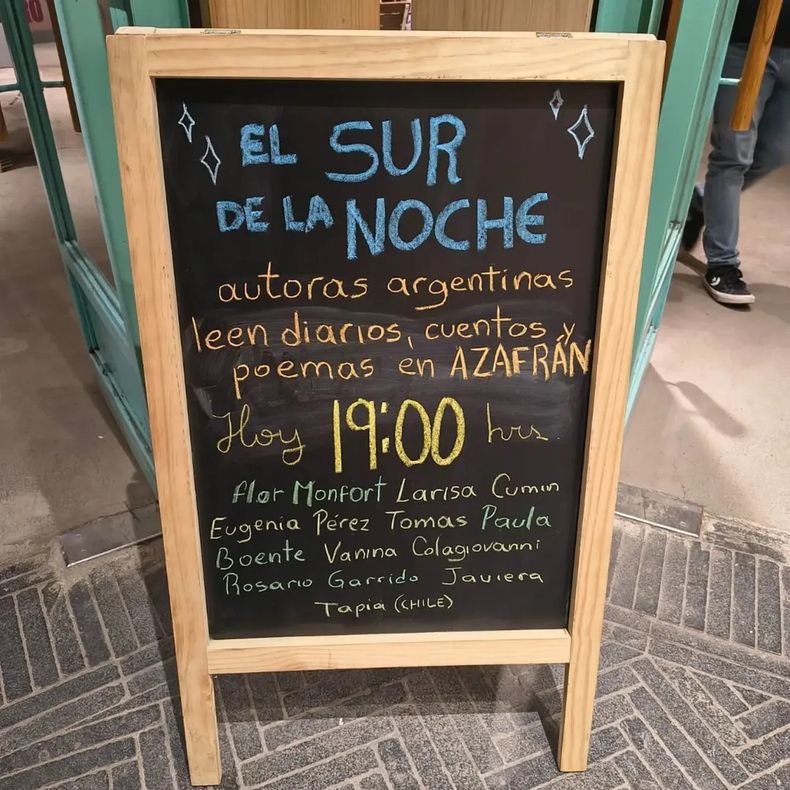 EL SUR
DE LA NOCHE
autoras argentinas
leen diarios, cuentos y
poemas en AZAFRÁN
Hoy 19:00 hrs
flor Monfort Larisa Cumin
Eugenia Pérez Tomas Paula
Boente Vanina Colagiovanni
Rosario Garrido Javiera
Tapia (CHILE)